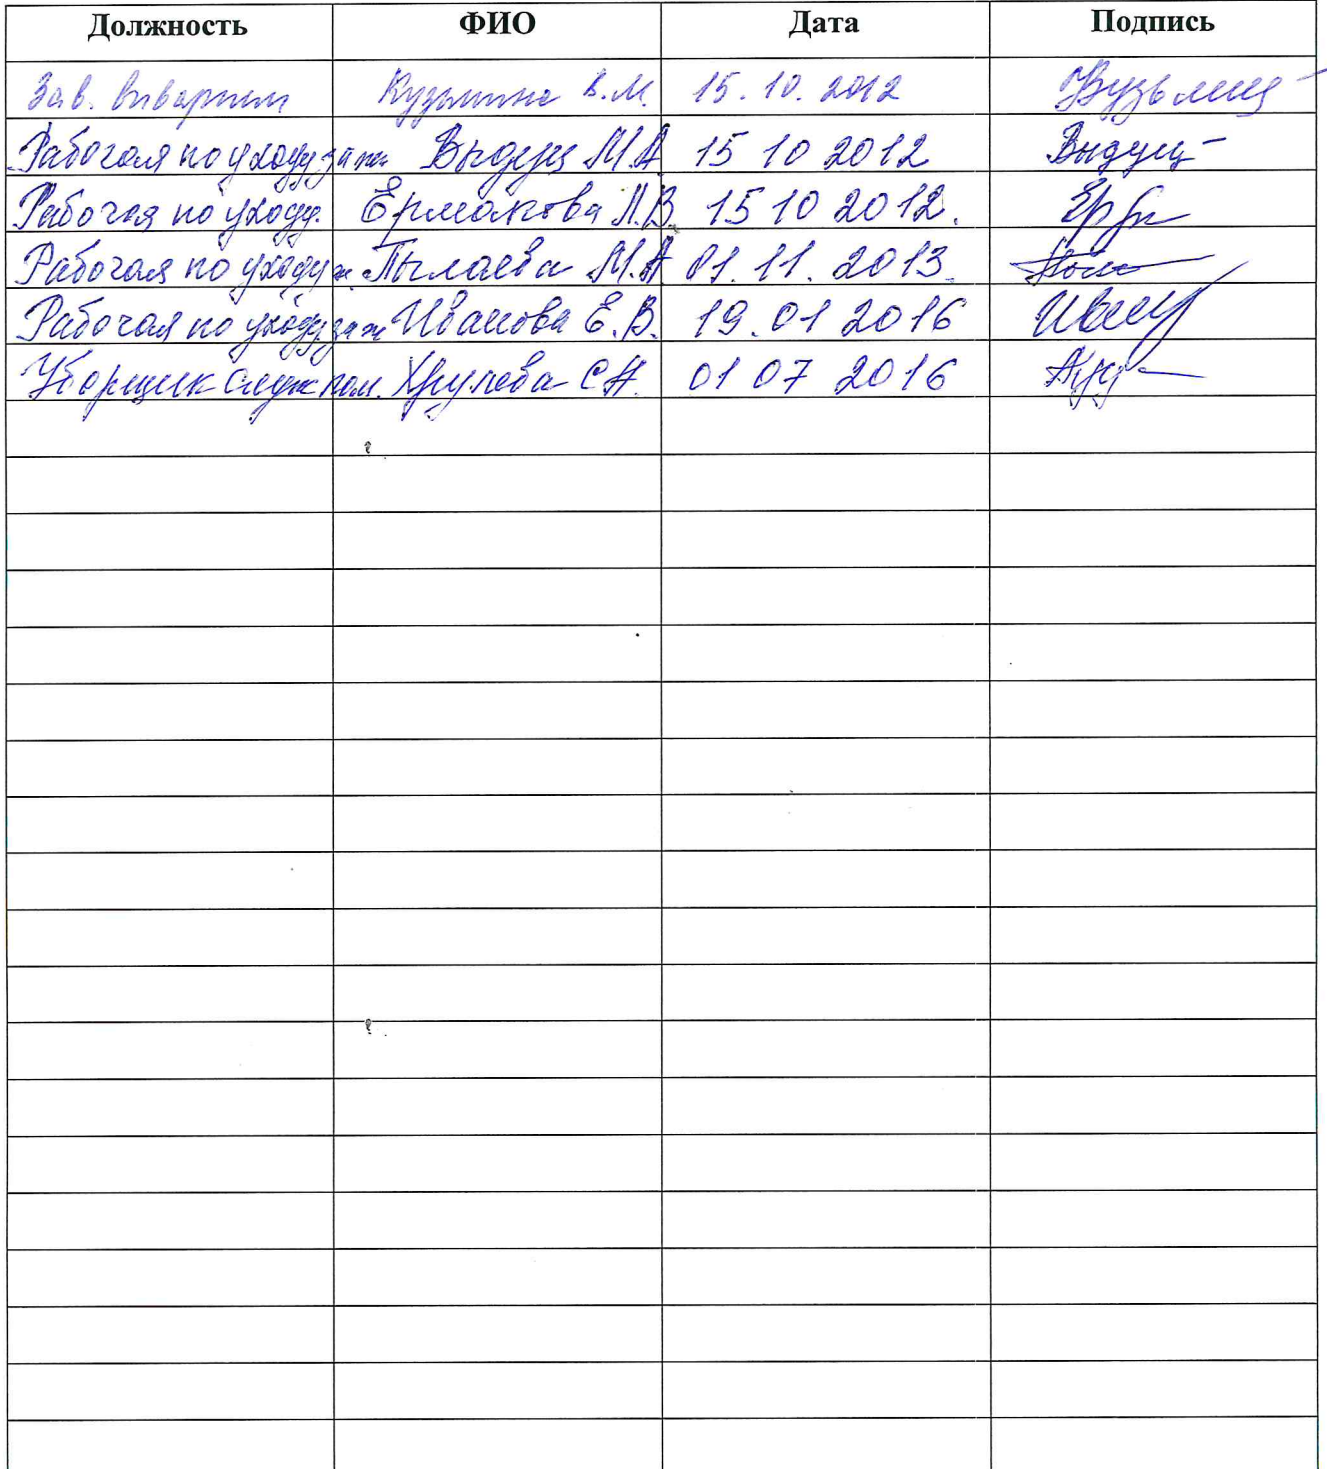 Должность ФИО Дата Подпись
Зав. виварием Кузьмина В.М. 15.10.2012 Кузьмина
Рабочая по уходу за ж М.А 15 10 2012
Рабочая по уходу. Ермакова Л.В. 15 10 2012.
Рабочая по уходу ж. Пылаева М.А 01.11.2013
Рабочая по уходу за ж Иванова Е.В. 19.01 2016
Уборщик служ пом. Хрулева С.Н. 01 07 2016